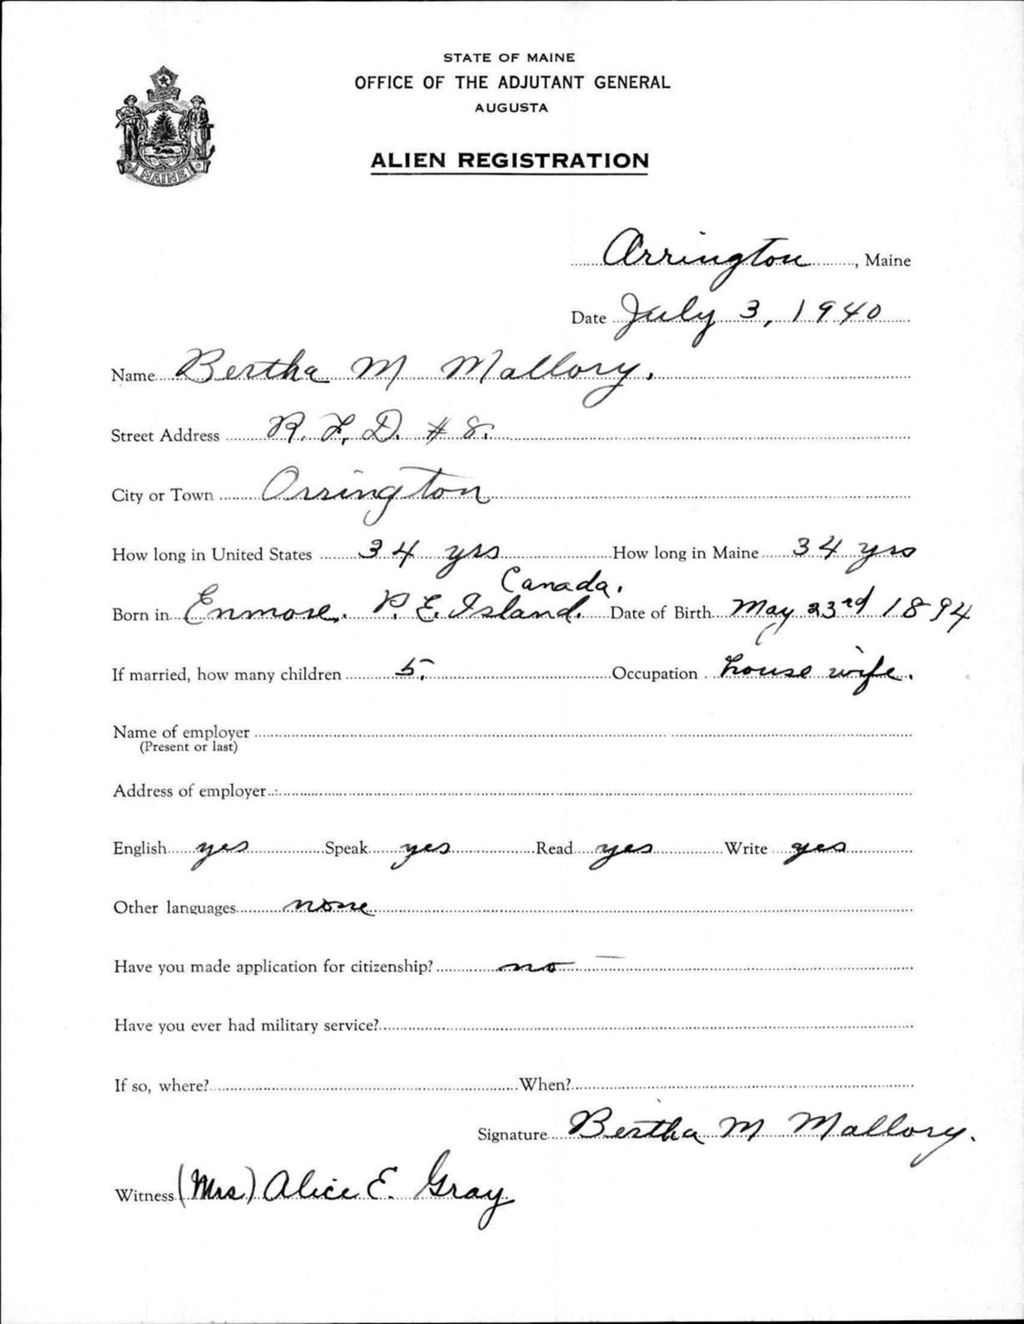 STATE OF MAINE
OFFICE OF THE ADJUTANT GENERAL
AUGUSTA
ALIEN REGISTRATION
MAINE
Orrington, Maine
Date July 3, 1940
Name Bertha M Mallory.
Street Address R. F. D. # 8.
City or Town Orrington
How long in United States 34 yrs How long in Maine 34 yrs
Canada.
Born in Enmore. P. E. Island. Date of Birth May 23rd 1894
If married, how many children 5. Occupation house wife.
Name of employer
(Present or last)
Address of employer
English yes Speak yes Read yes Write yes
Other languages none
Have you made application for citizenship? no
Have you ever had military service?
If so, where? When?
Signature Bertha M Mallory.
Witness (Mrs.) Alice E. Gray